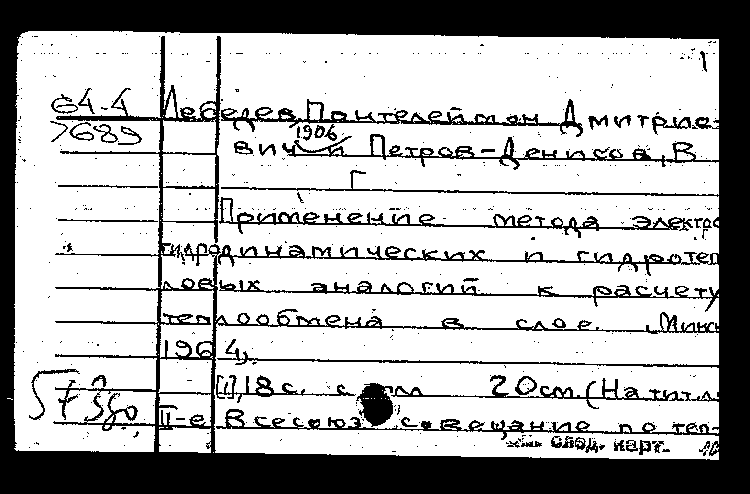 1
64-4 Лебедев, Пантелеймон Дмитрие-
7689 1906
вич и Петров-Денисов, В
Г
Применение метода электро
гидродинамических и гидротеп
ловых аналогий к расчету
теплообмена в слое. Минс
1964,
[1], 18 с. с илл 20см. (На тит.л.
II-е Всесоюз совещание по теп-
след. карт.